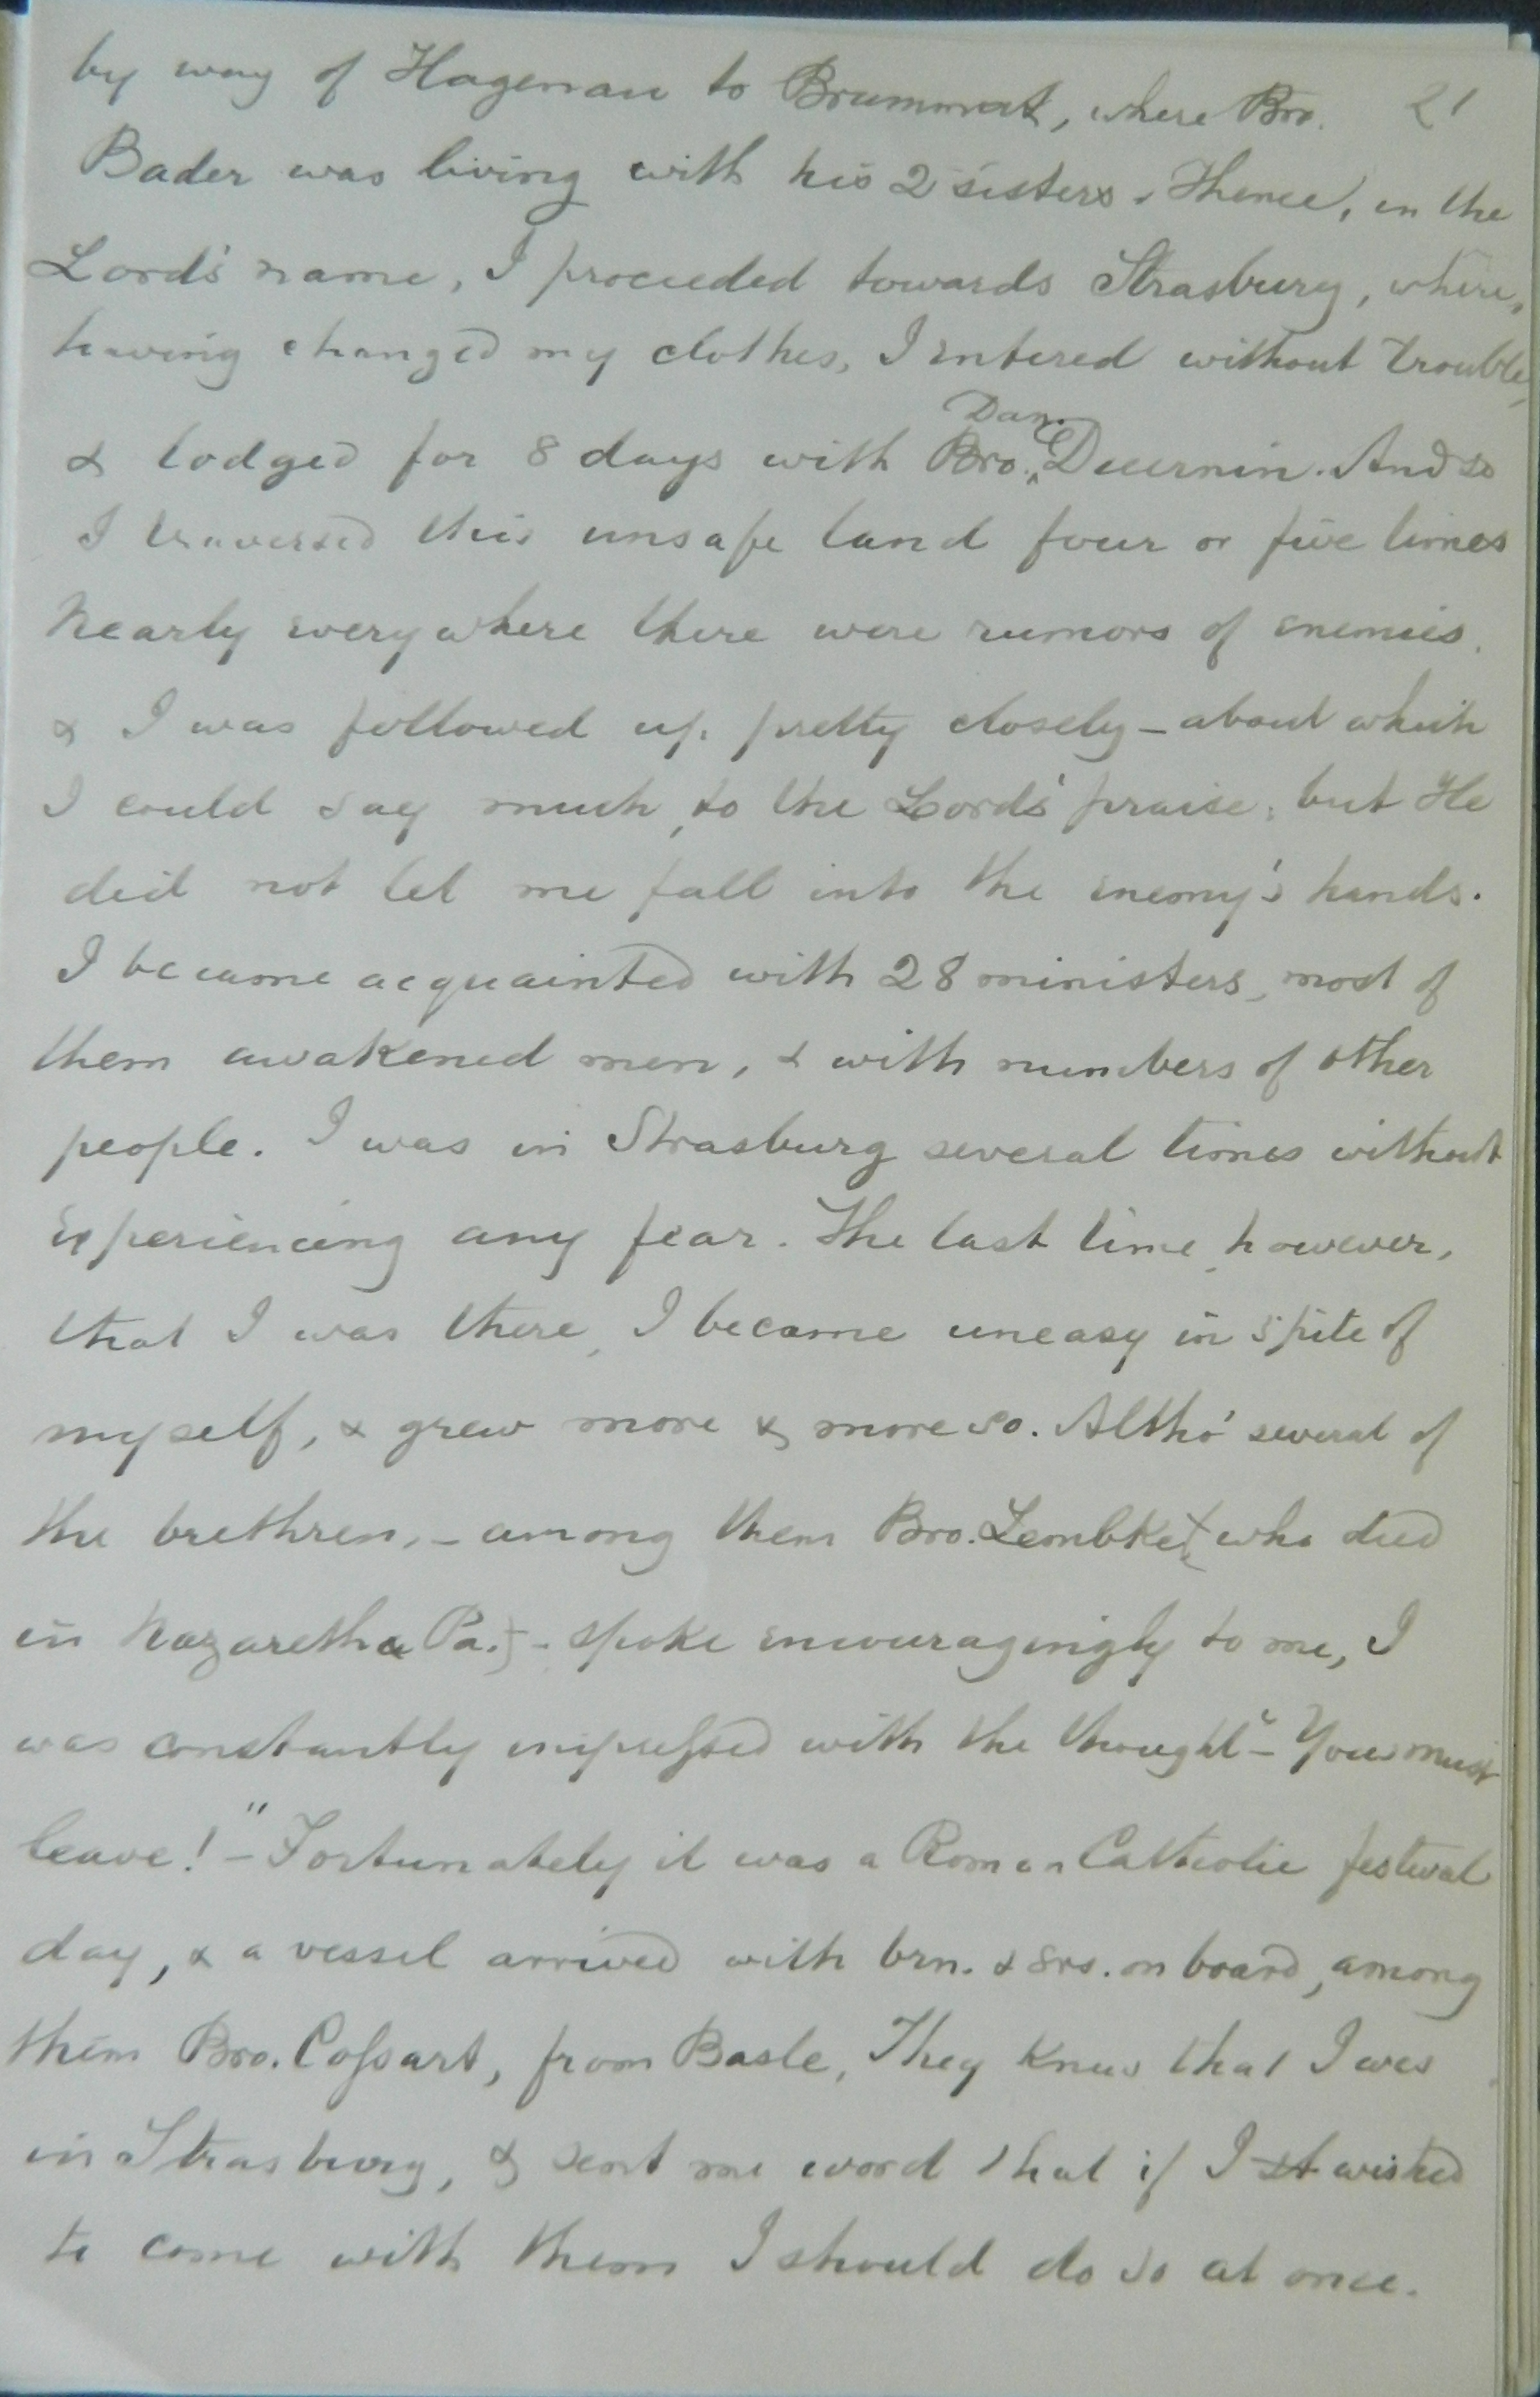 by way of Hagenau to Brummat, where Bro. 21
Bader was living with his 2 sisters. Thence, in the
Lord's name, I proceeded towards Strasburg, where,
having changed my clothes, I entered without trouble,
Dan.
& lodged for 8 days with Bro. ^ Deuernin. And so
I traversed this unsafe land four or five times
Nearly everywhere there were rumors of enemies.
& I was followed up pretty closely – about which
I could say much, to the Lord's praise; but He
did not let me fall into the enemy's hands.
I became acquainted with 28 ministers, most of
them awakened men, & with numbers of other
people. I was in Strasburg several times without
experiencing any fear. The last time, however,
that I was there, I became uneasy in spite of
myself, & grew more & more so. Altho' several of
the brethren, – among them Bro. Lembke (who died
in Nazareth Pa.) – spoke encouragingly to me, I
was constantly impressed with the thought – "You must
leave!" – Fortunately it was a Roman Catholic festival
day, & a vessel arrived with brn. & srs. on board, among
them Bro. Cossart, from Basle. They knew that I was
in Strasburg, & sent me word that if I wished
to come with them I should do so at once.